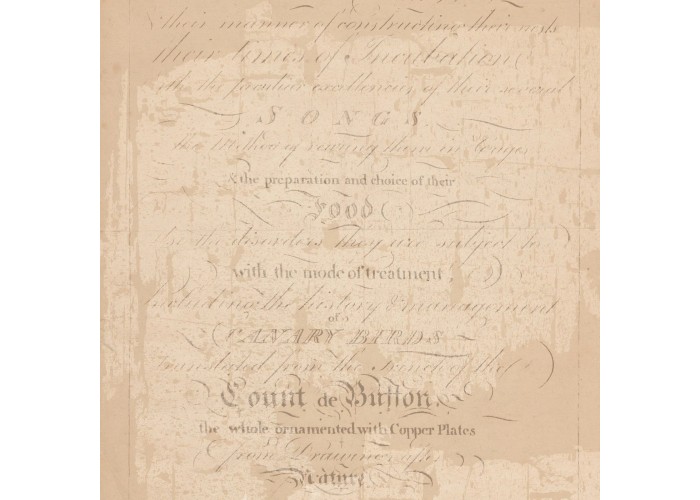 their manner of constructing their nests
their times of Incubation
with the peculiar excellencies of their several
SONGS
the Method of rearing them in Cages
& the preparation and choice of their
Food
the disorders they are subject to
with the mode of treatment,
Including the history & management
of
CANARY BIRDS
Translated from the French of the
Count de Buffon,
the whole ornamented with Copper Plates
from Drawings after
Nature